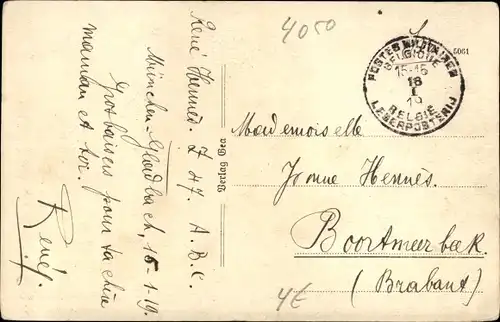 René Hennes. Z 47. A.B.C.
München-Gladbach, 16-1-19.
Gros baisers pour ta chère
maman et toi.
René.
4050
5061
POSTES MILITAIRES
BELGIQUE
15-16
18
I
19
BELGIË
LEGERPOSTERIJ
Verlag Geo
Mademoiselle
Yvonne Hennes.
Boortmeerbeek
(Brabant)
4€